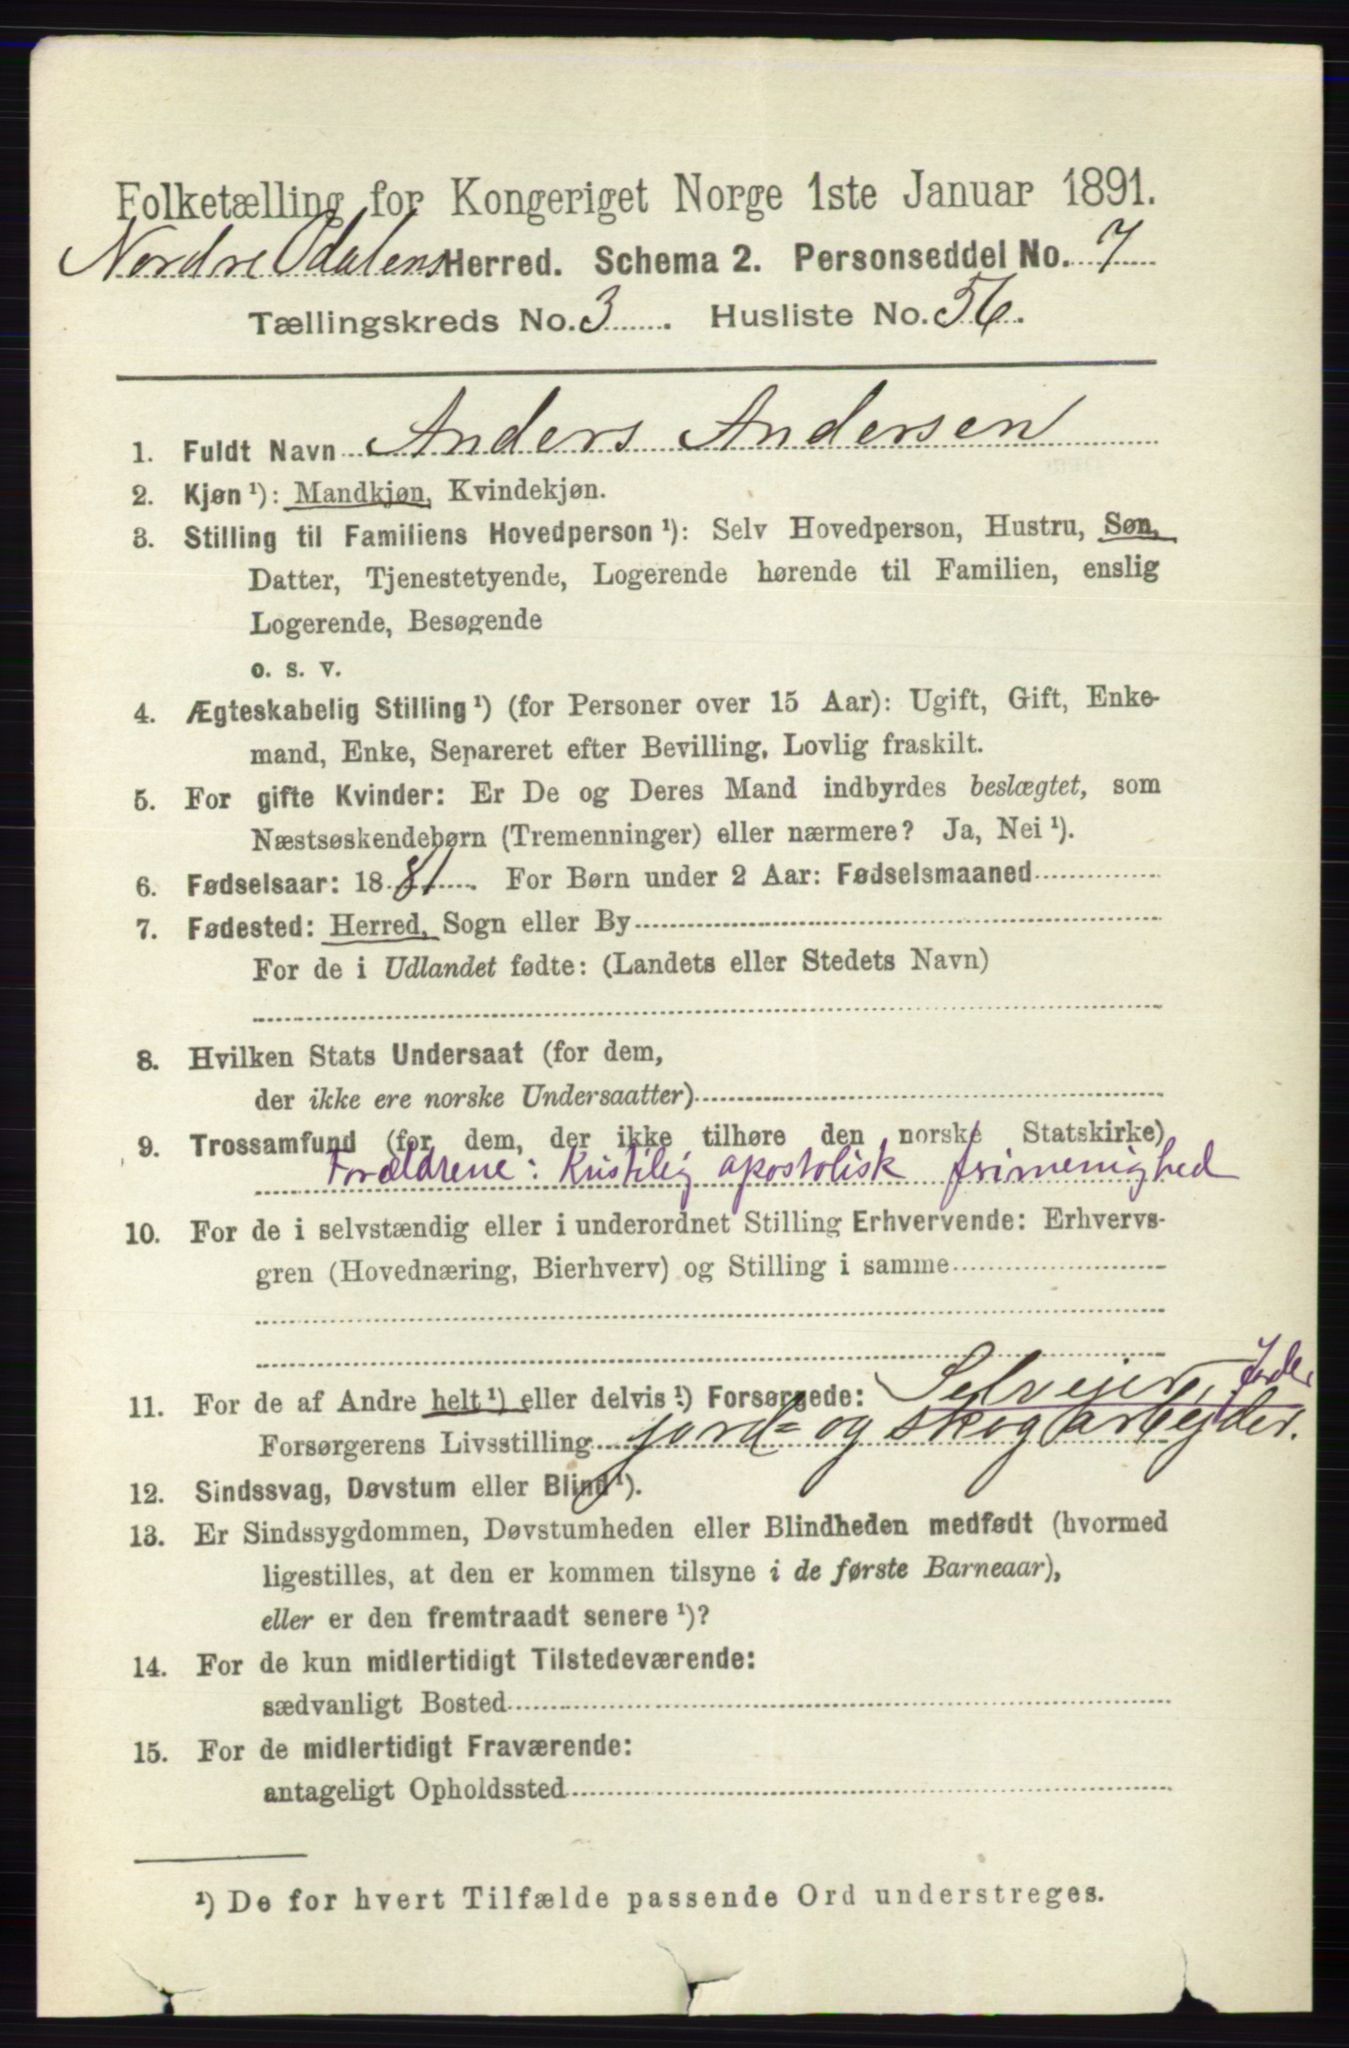 Folketælling for Kongeriget Norge 1ste Januar 1891.
Nordre Odalens Herred. Schema 2. Personseddel No. 7
Tællingskreds No. 3. Husliste No. 56.
1. Fuldt Navn Anders Andersen
2. Kjøn ¹): Mandkjøn, Kvindekjøn.
3. Stilling til Familiens Hovedperson ¹): Selv Hovedperson, Hustru, Søn,
Datter, Tjenestetyende, Logerende hørende til Familien, enslig
Logerende, Besøgende
o. s. v.
4. Ægteskabelig Stilling ¹) (for Personer over 15 Aar): Ugift, Gift, Enke-
mand, Enke, Separeret efter Bevilling, Lovlig fraskilt.
5. For gifte Kvinder: Er De og Deres Mand indbyrdes beslægtet, som
Næstsøskendebørn (Tremenninger) eller nærmere? Ja, Nei ¹).
6. Fødselsaar: 1881. For Børn under 2 Aar: Fødselsmaaned
7. Fødested: Herred, Sogn eller By
For de i Udlandet fødte: (Landets eller Stedets Navn)
8. Hvilken Stats Undersaat (for dem,
der ikke ere norske Undersaatter)
9. Trossamfund (for dem, der ikke tilhøre den norske Statskirke)
Forældrene: Kristilig apostolisk frimenighed
10. For de i selvstændig eller i underordnet Stilling Erhvervende: Erhvervs-
gren (Hovednæring, Bierhverv) og Stilling i samme
11. For de af Andre helt ¹) eller delvis ¹) Forsørgede: Selvejer,
Forsørgerens Livsstilling jord= og skogarbejder.
12. Sindssvag, Døvstum eller Blind ¹).
13. Er Sindssygdommen, Døvstumheden eller Blindheden medfødt (hvormed
ligestilles, at den er kommen tilsyne i de første Barneaar),
eller er den fremtraadt senere ¹)?
14. For de kun midlertidigt Tilstedeværende:
sædvanligt Bosted
15. For de midlertidigt Fraværende:
antageligt Opholdssted
¹) De for hvert Tilfælde passende Ord understreges.